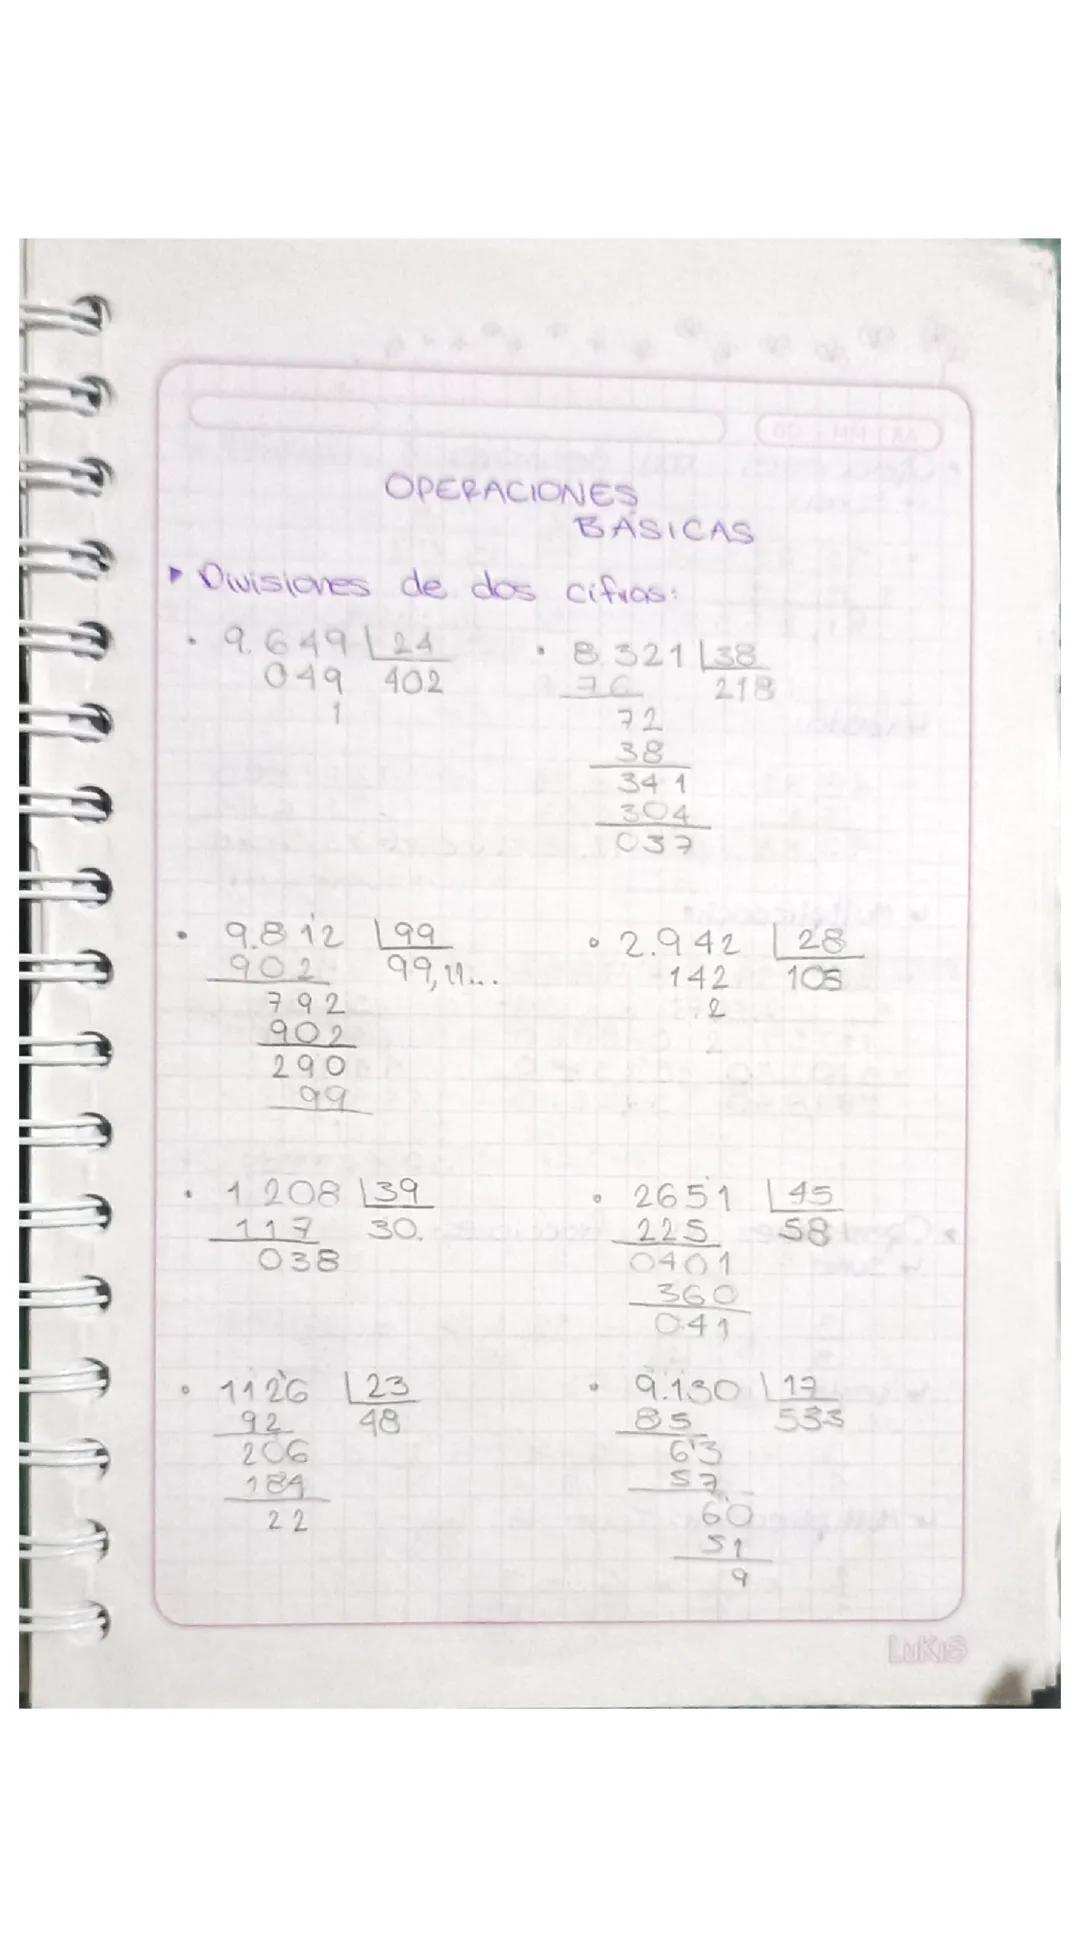 OPERACIONES
BÁSICAS
▸ Divisiones de dos cifras:
• 9.649 24
049 402
1
• 8.321 38
76 218
72
38
341
304
037
• 9.812 99
902 99,11...
792
902
290
99
• 2.942 28
142 105
2
• 1208 39
117 30.
038
• 2651 45
225 58
0401
360
041
• 1126 23
92 48
206
184
22
• 9.130 17
85 533
63
57
60
51
9
LUKIS